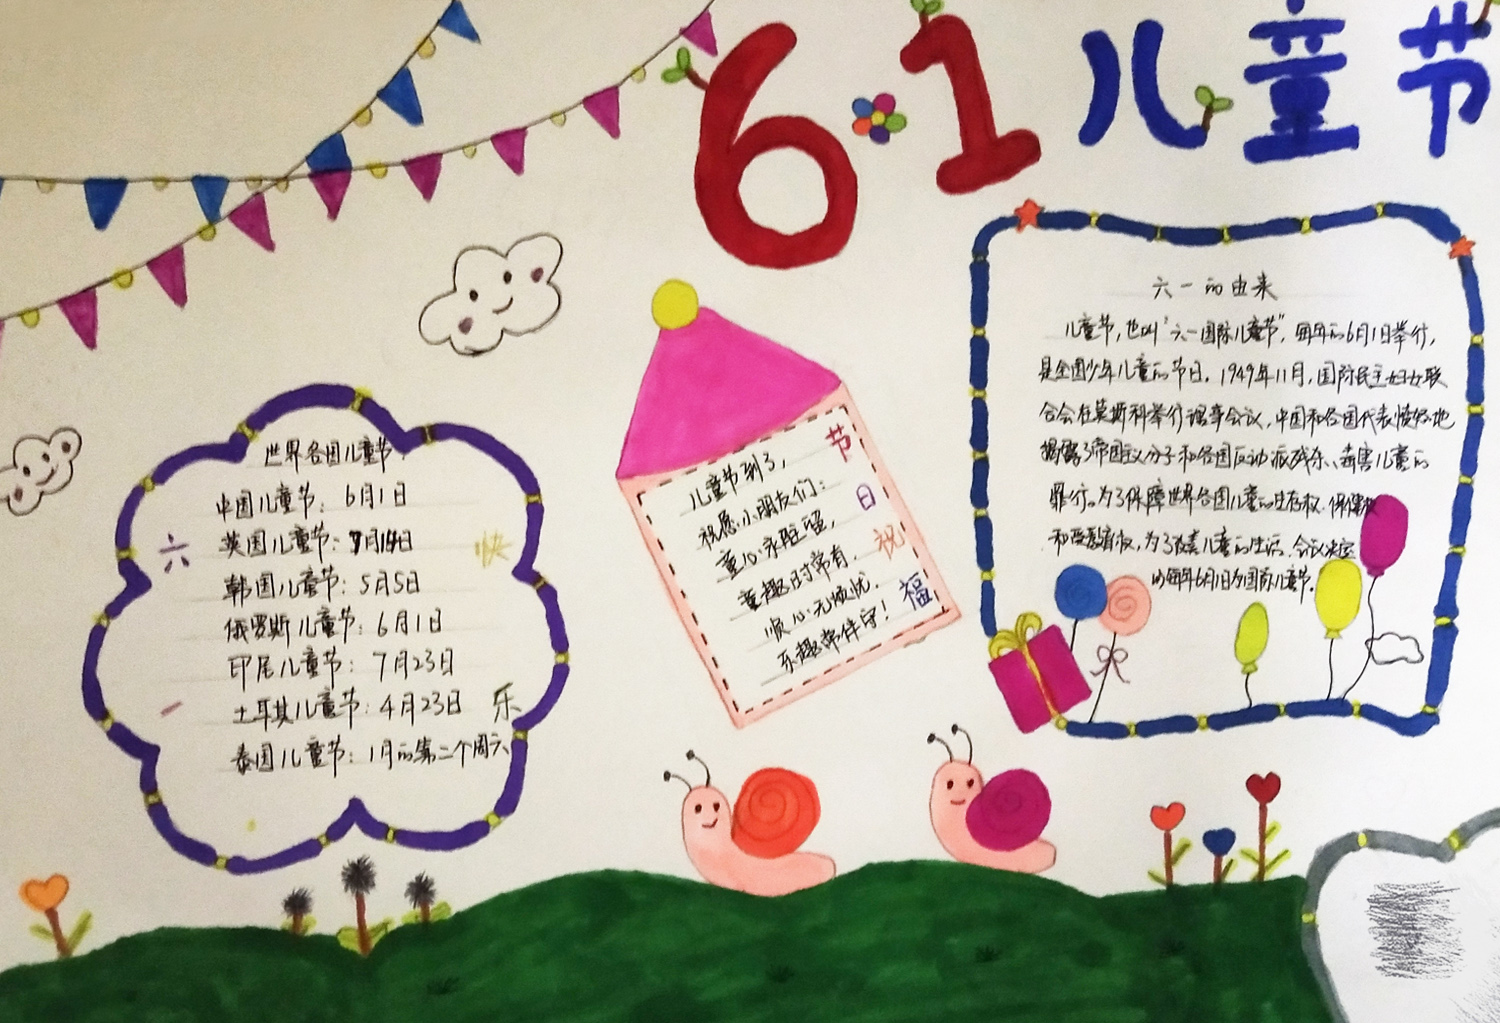 6·1儿童节
世界各国儿童节
中国儿童节：6月1日
英国儿童节：7月14日
韩国儿童节：5月5日
俄罗斯儿童节：6月1日
印尼儿童节：7月23日
土耳其儿童节：4月23日
泰国儿童节：1月的第二个周六
六一
快乐
儿童节到了，
祝愿小朋友们：
童心永驻留，
童趣时常有。
顺心无烦忧，
乐趣常伴守！
节日祝福
六一的由来
儿童节，也叫“六一国际儿童节”，每年的6月1日举行，
是全国少年儿童的节日。1949年11月，国际民主妇女联
合会在莫斯科举行理事会议，中国和各国代表愤怒地
揭露了帝国主义分子和各国反动派残杀、毒害儿童的
罪行。为了保障世界各国儿童的生存权、保健权
和受教育权，为了改善儿童的生活，会议决定
以每年6月1日为国际儿童节。